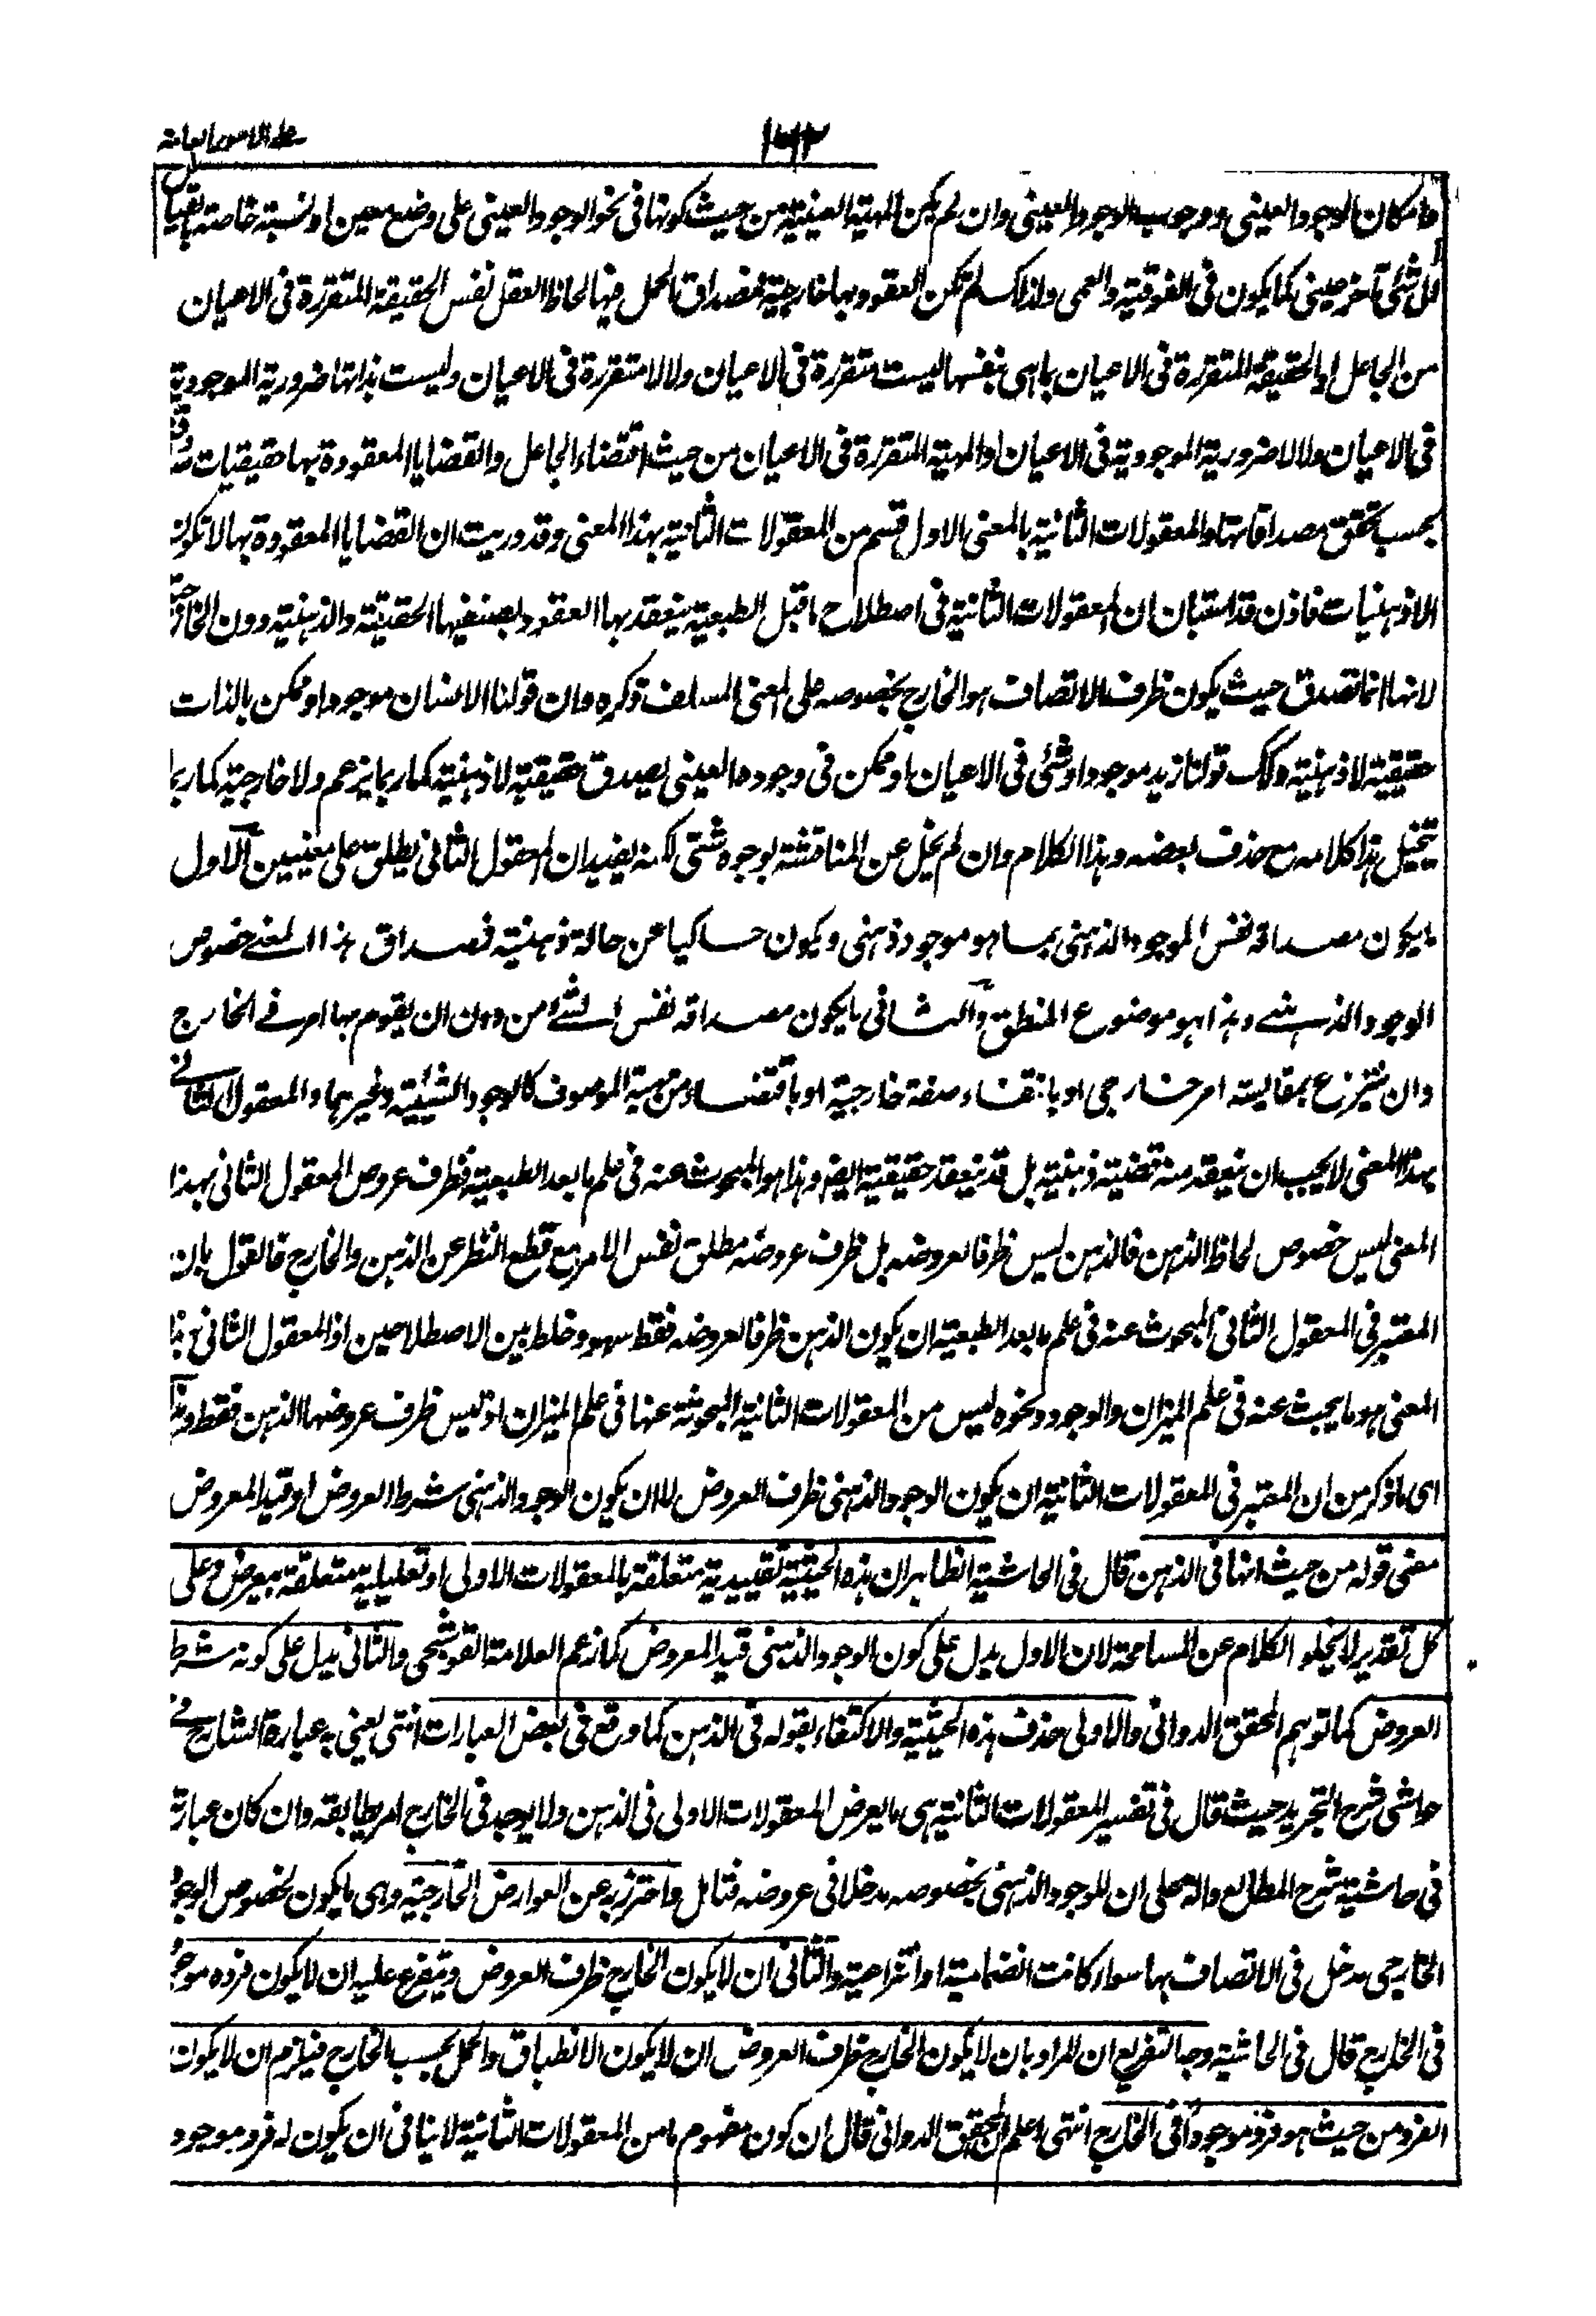 ١٦٣
وامكان الوجود العيني ووجوب الوجود العيني وان لم يكن المهية العينية من حيث كونها في نحو الوجود العيني على وضع معين او نسبة خاصة بالقياس
الى شئ آخر عيني كما يكون في الفوقية والعمى ولذلك لم تكن العقود بها خارجية فمصداق الحمل فيها لحاظ العقل نفس الحقيقة المتقررة في الاعيان
من الجاعل او الحقيقة المتقررة في الاعيان بما هي بنفسها ليست متقررة في الاعيان ولا لا متقررة في الاعيان وليست بذاتها ضرورية الموجودية
في الاعيان ولا لا ضرورية الموجودية في الاعيان او المهية المتقررة في الاعيان من حيث اقتضاء الجاعل والقضايا المعقودة بها حقيقيات
بحسب تحقق مصداقاتها والمعقولات الثانية بالمعنى الاول قسم من المعقولات الثانية بهذا المعنى وقد دريت ان القضايا المعقودة بها لا تكون
الا ذهنيات فاذن قد استبان ان المعقولات الثانية في اصطلاح ما قبل الطبعية ينعقد بها العقود بصنفيها الحقيقية والذهنية دون الخارجية
لانها انما تصدق حيث يكون ظرف الاتصاف هو الخارج بخصوصه على المعنى المسلف ذكره وان قولنا الانسان موجود او ممكن بالذات
حقيقية لا ذهنية وكذلك قولنا زيد موجود او شئ في الاعيان او ممكن في وجوده العيني يصدق حقيقية لا ذهنية كما ربما يزعم ولا خارجية كما ربما
يتخيل هذا كلامه مع حذف بعضه وهذا الكلام وان لم يخل عن المناقشة بوجوه شتى لكنه يفيد ان المعقول الثاني يطلق على معنيين الاول
ما يكون مصداقه نفس الموجود الذهني بما هو موجود ذهني ويكون حاكيا عن حالة ذهنية فمصداق هذا المعنى خصوص
الوجود الذهني وهذا هو موضوع المنطق والثاني ما يكون مصداقه نفس الشئ من دون ان يقوم بها امر في الخارج
وان ينتزع بمقايسته امر خارجي او بانتفاء صفة خارجية او باقتضاء من مهية الموصوف كالوجود والشيئية وغيرهما والمعقول الثاني
بهذا المعنى لا يجب ان ينعقد منه قضية ذهنية بل قد ينعقد حقيقية ايضا وهذا هو المبحوث عنه في علم ما بعد الطبعية فظرف عروض المعقول الثاني بهذا
المعنى ليس خصوص لحاظ الذهن فالذهن ليس ظرفا لعروضه بل ظرف عروضه مطلق نفس الامر مع قطع النظر عن الذهن والخارج فالقول بان
المعتبر في المعقول الثاني المبحوث عنه في علم ما بعد الطبعية ان يكون الذهن ظرفا لعروضه فقط سهو وخلط بين الاصطلاحين اذ المعقول الثاني بهذا
المعنى هو ما يبحث عنه في علم الميزان والوجود ونحوه ليس من المعقولات الثانية المبحوثة عنها في علم الميزان اذ ليس ظرف عروضها الذهن فقط وهذا
اى ما ذكر من ان المعتبر في المعقولات الثانية ان يكون الوجود الذهني ظرف العروض لا ان يكون الوجود الذهني شرط العروض او قيد المعروض
معنى قوله من حيث انها في الذهن قال في الحاشية الظاهر ان هذه الحيثية تقييدية متعلقة بالمعقولات الاولى او تعليلية متعلقة بيعرض وعلى
كل تقدير لا يخلو الكلام عن المسامحة لان الاول يدل على كون الوجود الذهني قيد المعروض كما زعم العلامة القوشجي والثاني يدل على كونه شرط
العروض كما توهم المحقق الدواني والاولى حذف هذه الحيثية والاكتفاء بقوله في الذهن كما وقع في بعض العبارات انتهى يعني به عبارة الشارح في
حواشي شرح التجريد حيث قال في تفسير المعقولات الثانية هى ما يعرض المعقولات الاولى في الذهن ولا يوجد في الخارج امر يطابقه وان كان عبارته
في حاشية شرح المطالع دالة على ان للوجود الذهني بخصوصه مدخلا في عروضه فتامل واحترز به عن العوارض الخارجية وهى ما يكون لخصوص الوجود
الخارجي مدخل في الاتصاف بها سواء كانت انضمامية او انتزاعية والثاني ان لا يكون الخارج ظرف العروض ويتفرع عليه ان لا يكون فرده موجودا
في الخارج قال في الحاشية وجه التفريع ان المراد بان لا يكون الخارج ظرف العروض ان لا يكون الانطباق والحمل بحسب الخارج فيلزم ان لا يكون
الفرد من حيث هو فرد موجودا في الخارج انتهى اعلم ان المحقق الدواني قال ان كون مفهوم ما من المعقولات الثانية لا ينافي ان يكون له فرد موجود